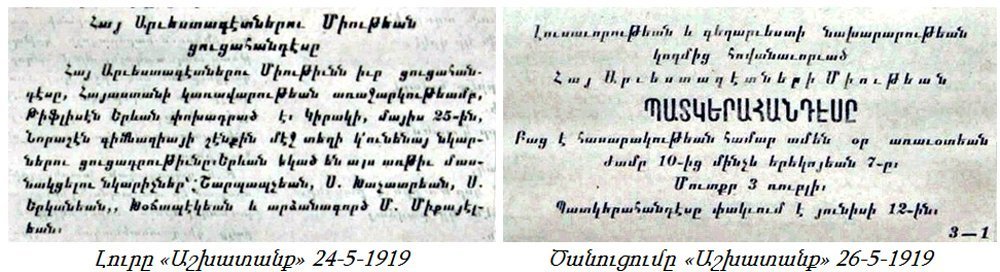 Հայ Արւեստագէտներու Միութեան
ցուցահանդէսը
Հայ Արւեստագէտներու Միութիւնն իւր ցուցահան-
դէսը, Հայաստանի կառավարութեան առաջարկութեամբ,
Թիֆլիսէն Երևան փոխադրած է։ Կիրակի, մայիս 25-ին,
Նորաշէն գիմնազիայի շէնքին մէջ տեղի կ՚ունենայ նկար-
ներու ցուցադրութիւնը։ Երևան եկած են այս առթիւ մաս-
նակցելու նկարիչներ՝ Շարպապչեան, Ս. Խաչատրեան, Ս.
Երկանեան,, Խօճապէկեան և արձանագործ Մ. Միքայէլ-
եան։
Լուրը «Աշխատանք» 24-5-1919
Լուսաւորութեան և գեղարւեստի նախարարութեան
կողմից հովանաւորւած
Հայ Արւեստագէտների Միութեան
ՊԱՏԿԵՐԱՀԱՆԴԷՍԸ
Բաց է հասարակութեան համար ամեն օր առաւօտեան
ժամը 10-ից մինչև երեկոյեան 7-ը։
Մուտքը 3 ռուբլի։
Պատկերահանդէսը փակւում է յունիսի 12-ին։
3—1
Ծանուցումը «Աշխատանք» 26-5-1919